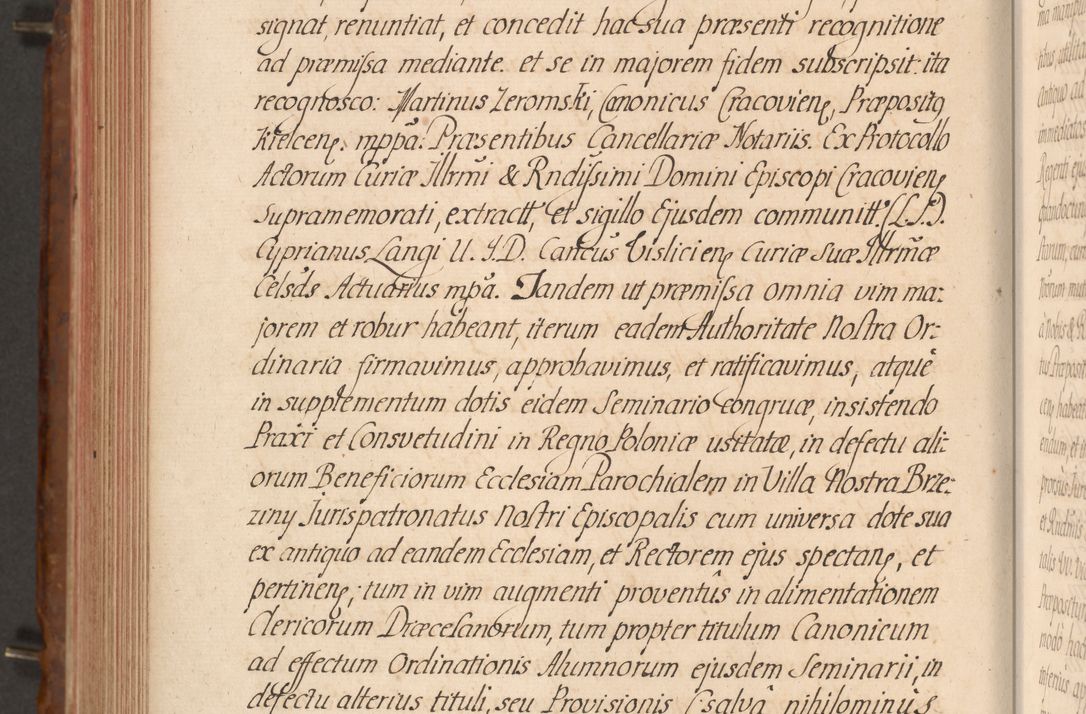 signat, renuntiat, et concedit hac sua præsenti recognitione
ad præmissa mediante. et se in majorem fidem subscripsit: ita
recognosco: Martinus Zeromski, Canonicus Cracovien, Præpositg
Kielcen. mppã: Præsentibus Cancellariæ Notariis. Ex Protocollo
Actorum Curiæ Illrmi & Rndissimi Domini Episcopi Cracovien
supramemorati, extractt, et sigillo Ejusdem communitt. (L.S.).
Cyprianus Langi U. J. D. Cantus Vislicien Curiæ suæ Illrmæ
Celsds Actuarius mpã. Tandem ut præmissa omnia vim ma:
jorem et robur habeant, iterum eadem Authoritate Nostra Or:
dinaria firmavimus, approbavimus, et ratificavimus, atque
in supplementum dotis eidem Seminario congruæ, insistendo
Praxi et Consvetudini in Regno Poloniæ usitatæ, in defectu ali:
orum Beneficiorum Ecclesiam Parochialem in Villa Nostra Brze:
ziny Jurispatronatus Nostri Episcopalis cum universa dote sua
ex antiquo ad eandem Ecclesiam, et Rectorem ejus spectan, et
pertinen; tum in vim augmenti proventûs in alimentationem
Clericorum Diæcesanorum, tum propter titulum Canonicum
ad effectum Ordinationis Alumnorum ejusdem Seminarii, in
defectu alterius tituli, seu Provisionis (salvâ nihilominus